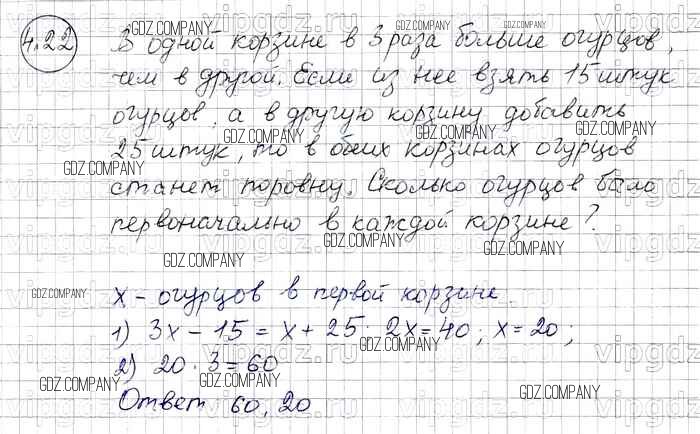 4.22
В одной корзине в 3 раза больше огурцов,
чем в другой. Если из нее взять 15 штук
огурцов, а в другую корзину добавить
25 штук, то в обеих корзинах огурцов
станет поровну. Сколько огурцов было
первоначально в каждой корзине?
x - огурцов в первой корзине
1) 3x - 15 = x + 25; 2x = 40; x = 20;
2) 20 · 3 = 60
Ответ 60, 20
GDZ.COMPANY
vipgdz.ru